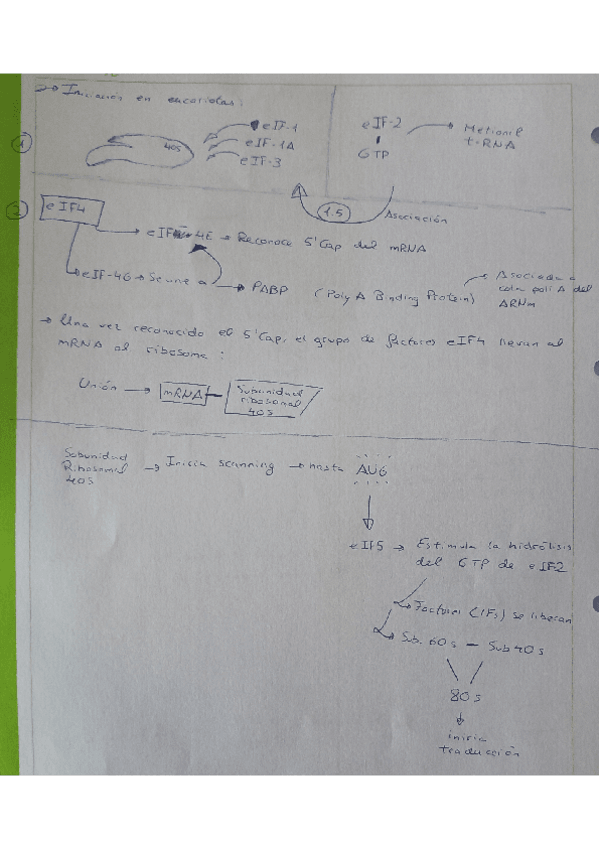 → Iniciación en eucariotas:
1
40s
eIF-1
eIF-1A
eIF-3
eIF-2
GTP
Metionil
t-RNA
1.5
Asociación
2
eIF4
eIF-4E → Reconoce 5'Cap del mRNA
eIF-4G → Se une a → PABP (Poly A Binding Protein)
Asociada a
cola poli A del
ARNm
→ Una vez reconocido el 5'Cap, el grupo de factores eIF4 llevan al
mRNA al ribosoma:
Unión → mRNA
Subunidad
ribosomal
40s
Subunidad
Ribosomal
40s
→ Inicia scanning → hasta AUG
eIF5 → Estimula la hidrólisis
del GTP de eIF2
→ Factores (IFs) se liberan
→ Sub. 60s — Sub 40s
80s
inicia
traducción